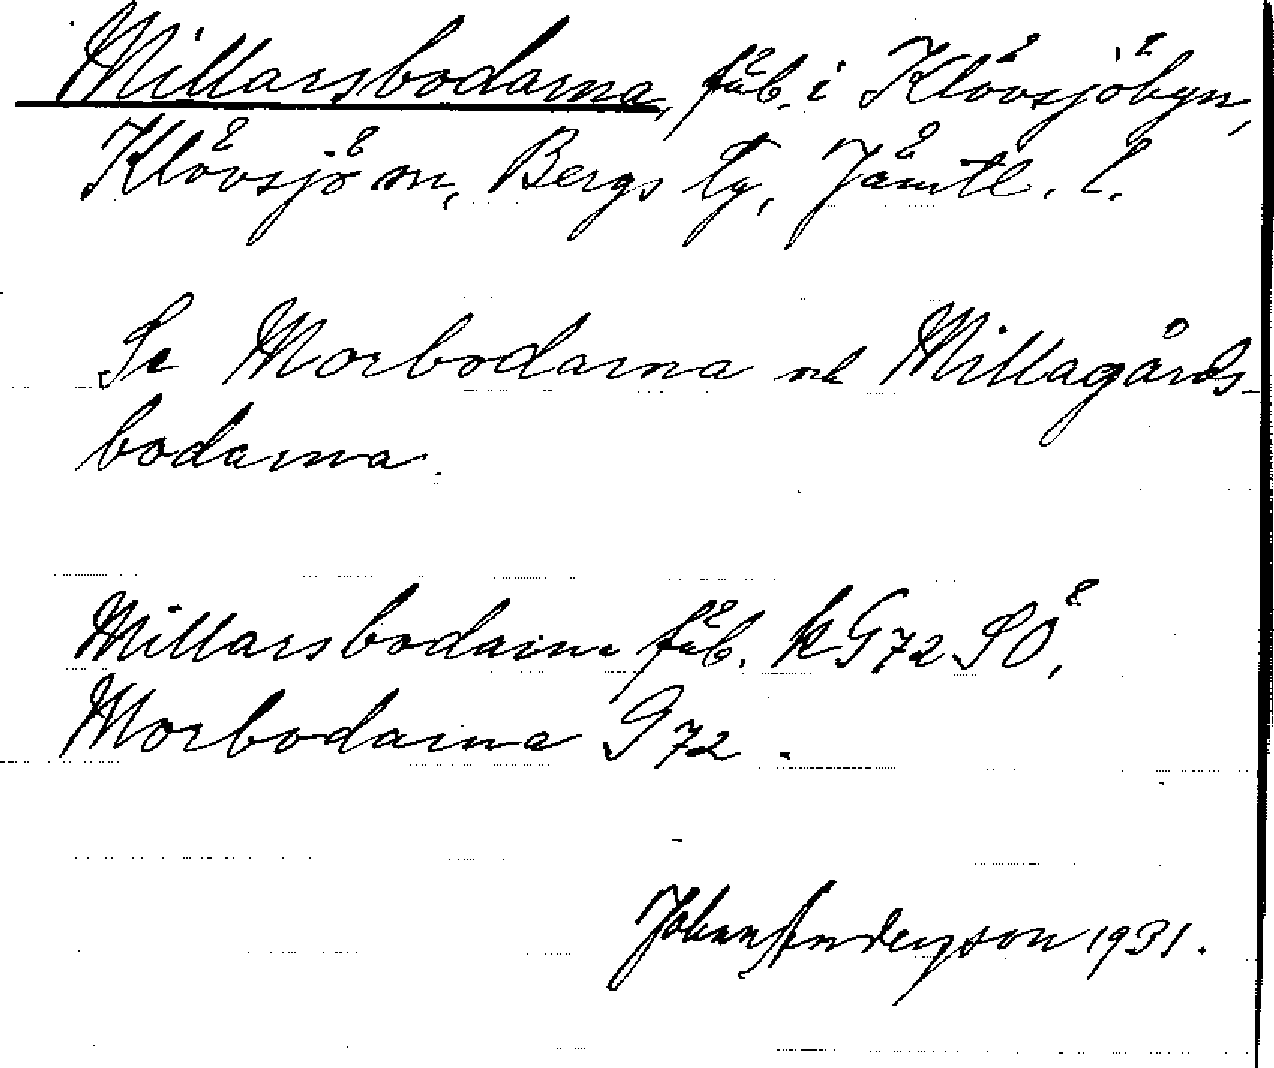 Millarsbodarna, fäb. i Klövsjöbyn,
Klövsjö sn, Bergs tg, Jämtl. l.
Se Morbodarna och Millagårds-
bodarna.
Millarsbodarna fäb. k G72 SÖ,
Morbodarna G72.
Johan Anderson 1931.